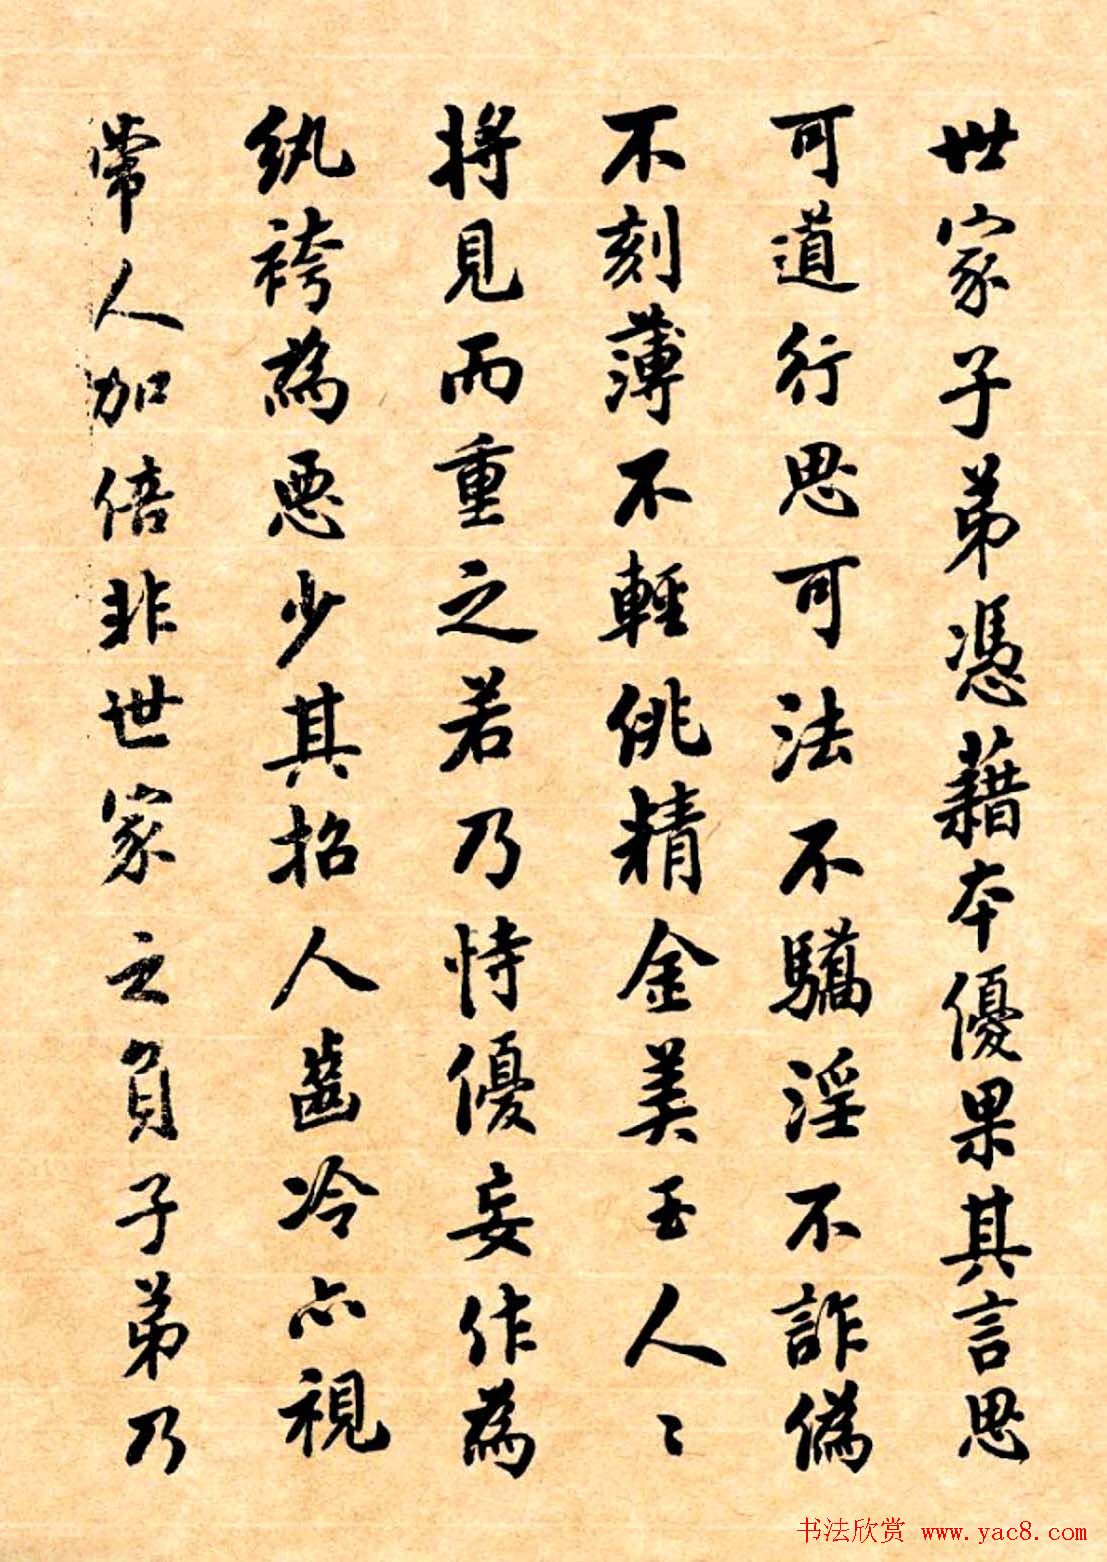 世家子弟憑藉本優果其言思
可道行思可法不驕淫不詐偽
不刻薄不輕佻精金美玉人〻
將見而重之若乃恃優妄作為
紈袴為惡少其招人齒冷亦視
常人加倍非世家之負子弟乃
书法欣赏 www.yac8.com